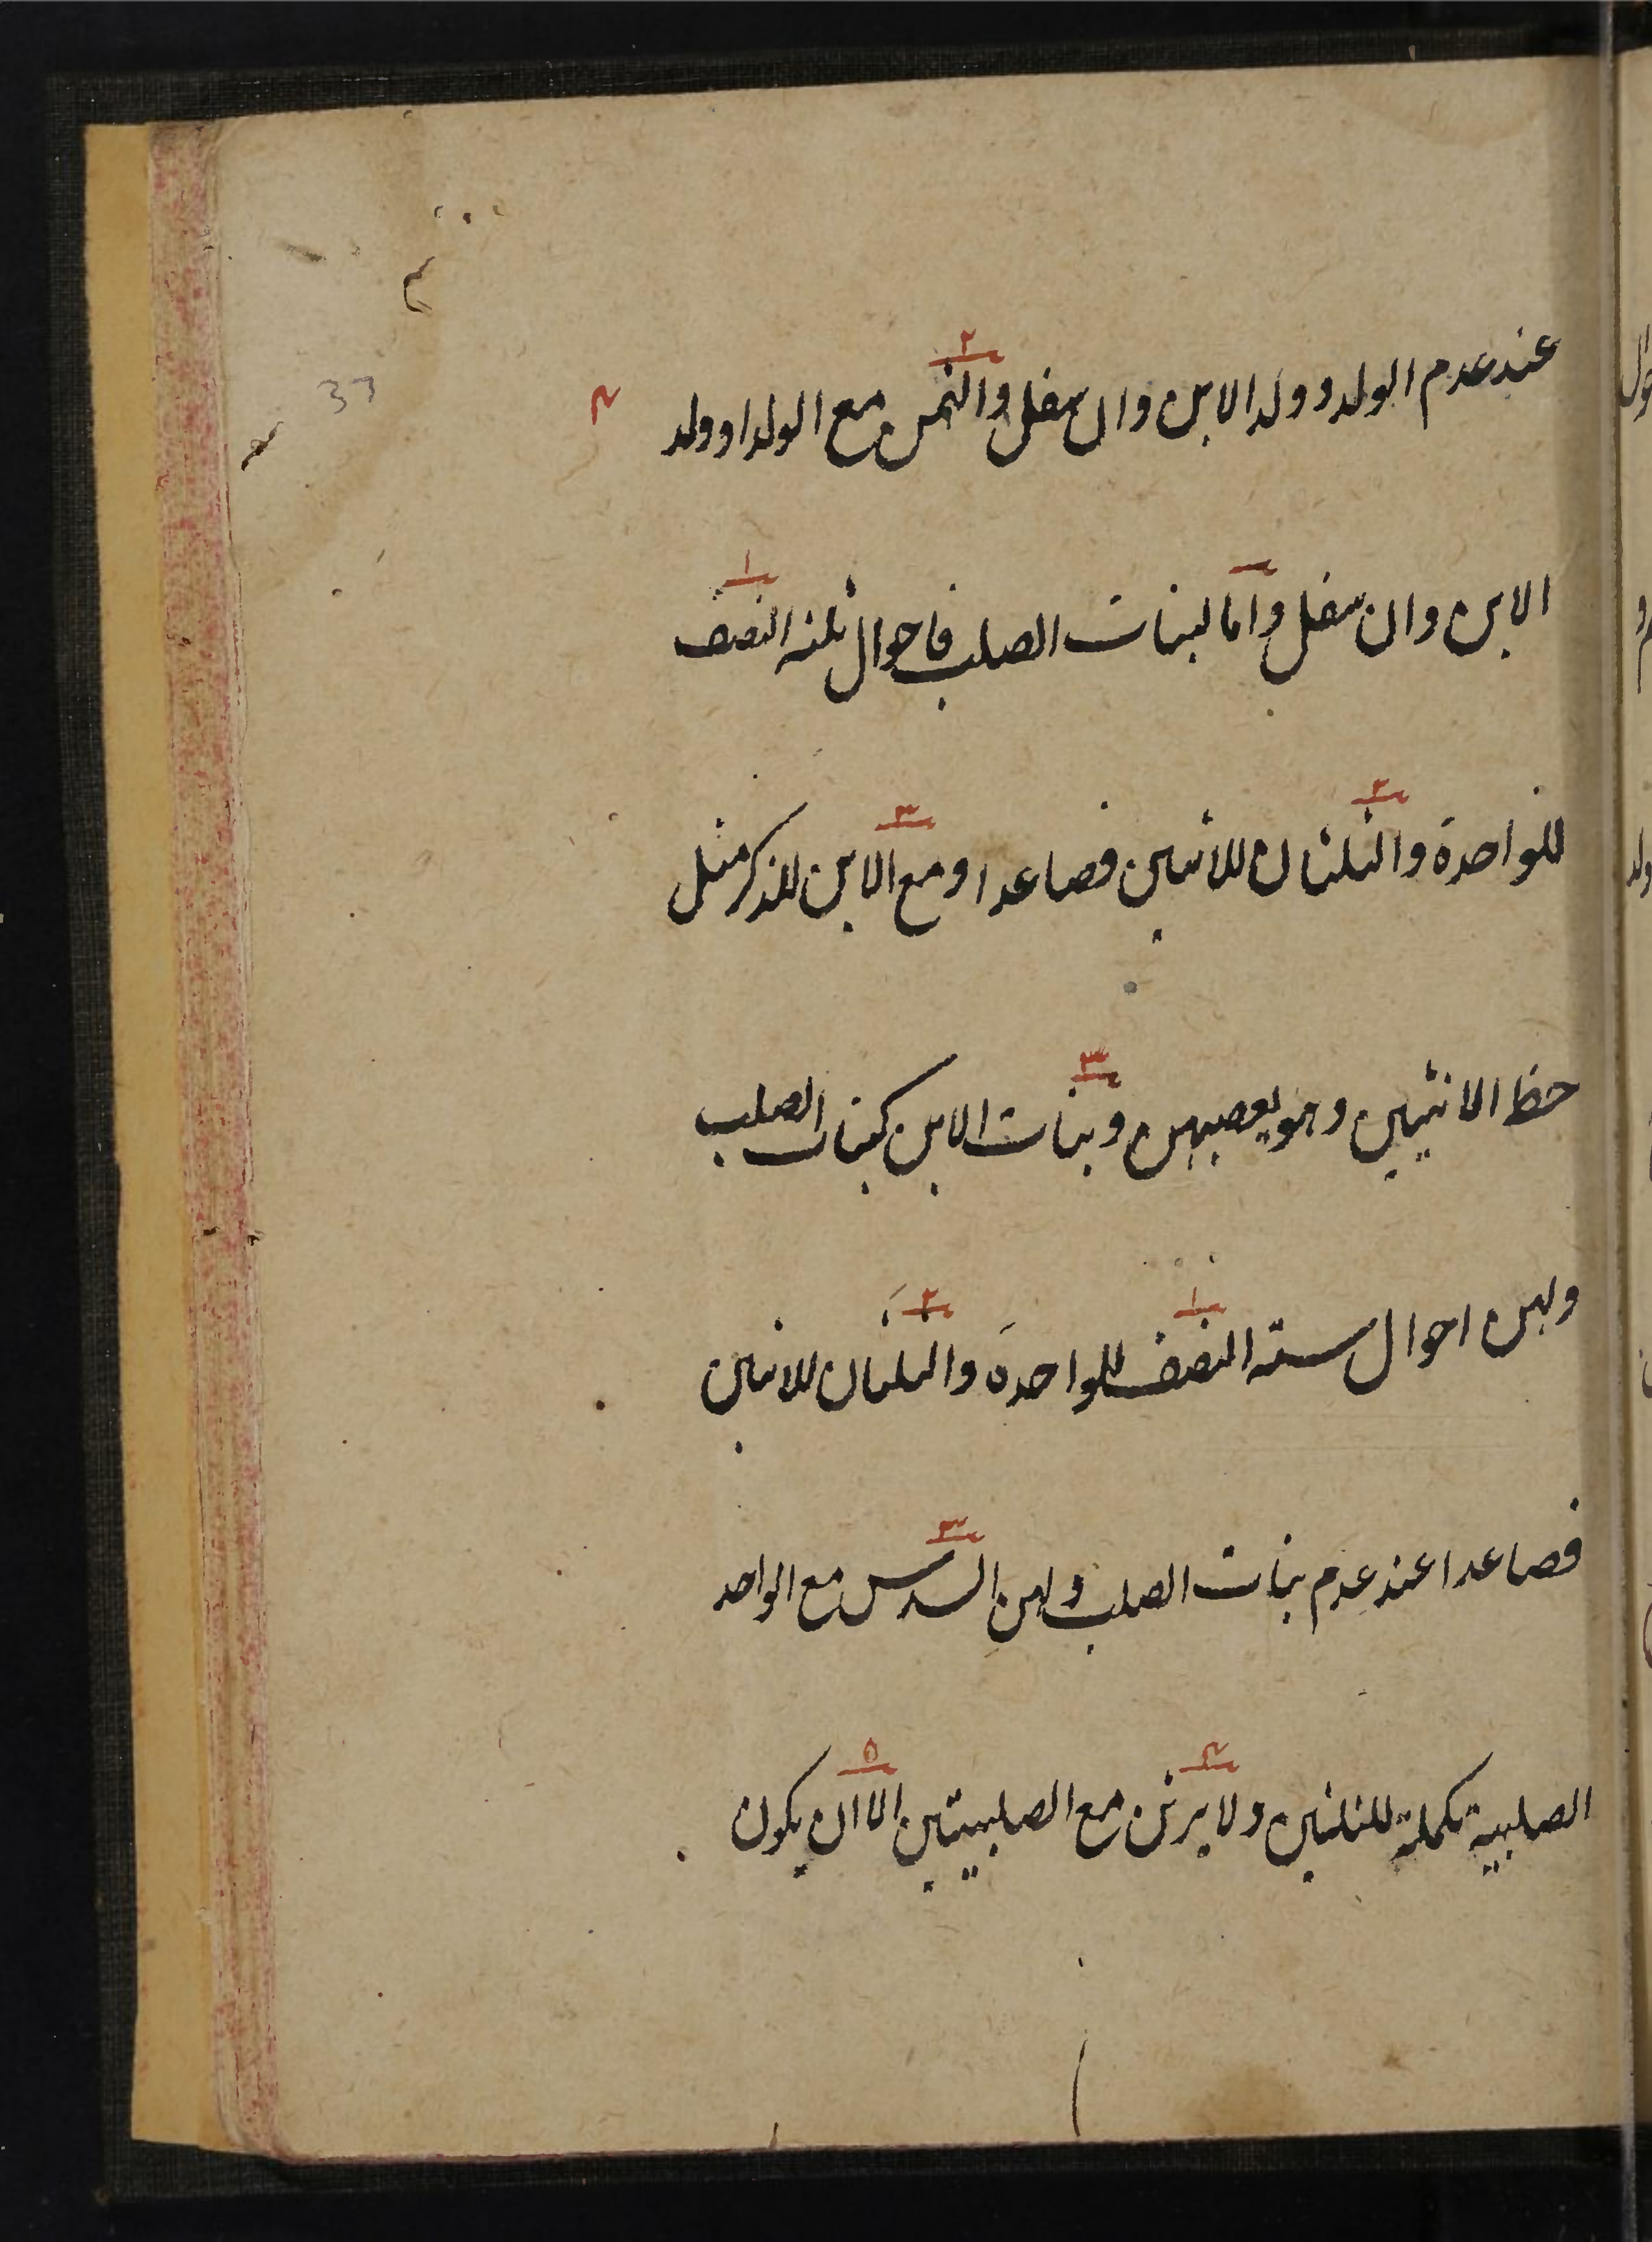 عند عدم الولد وولد الابن وان سفل والثمن مع الولد او ولد
الابن وان سفل واما لبنات الصلب فاحوال ثلثه النصف
للواحدة والثلثان للاثنين فصاعدا ومع الابن للذكر مثل
حظ الانثيين وهو يعصبهن وبنات الابن كبنات الصلب
ولهن احوال ستة النصف للواحدة والثلثان للاثنين
فصاعدا عند عدم بنات الصلب ولهن السدس مع الواحد
الصلبية تكملة للثلثين ولا يرثن مع الصلبيتين الا ان يكون